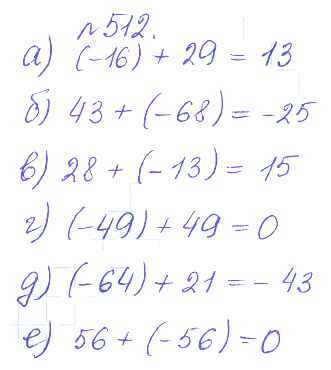 №512.
а) (-16) + 29 = 13
б) 43 + (-68) = -25
в) 28 + (-13) = 15
г) (-49) + 49 = 0
д) (-64) + 21 = - 43
е) 56 + (-56) = 0